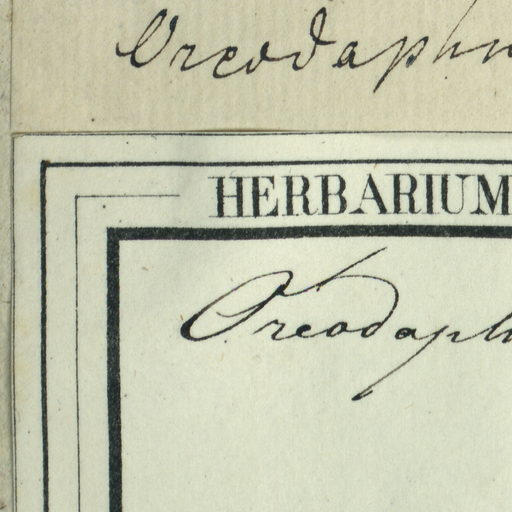 Oreodaphn
HERBARIUM
Oreodaph